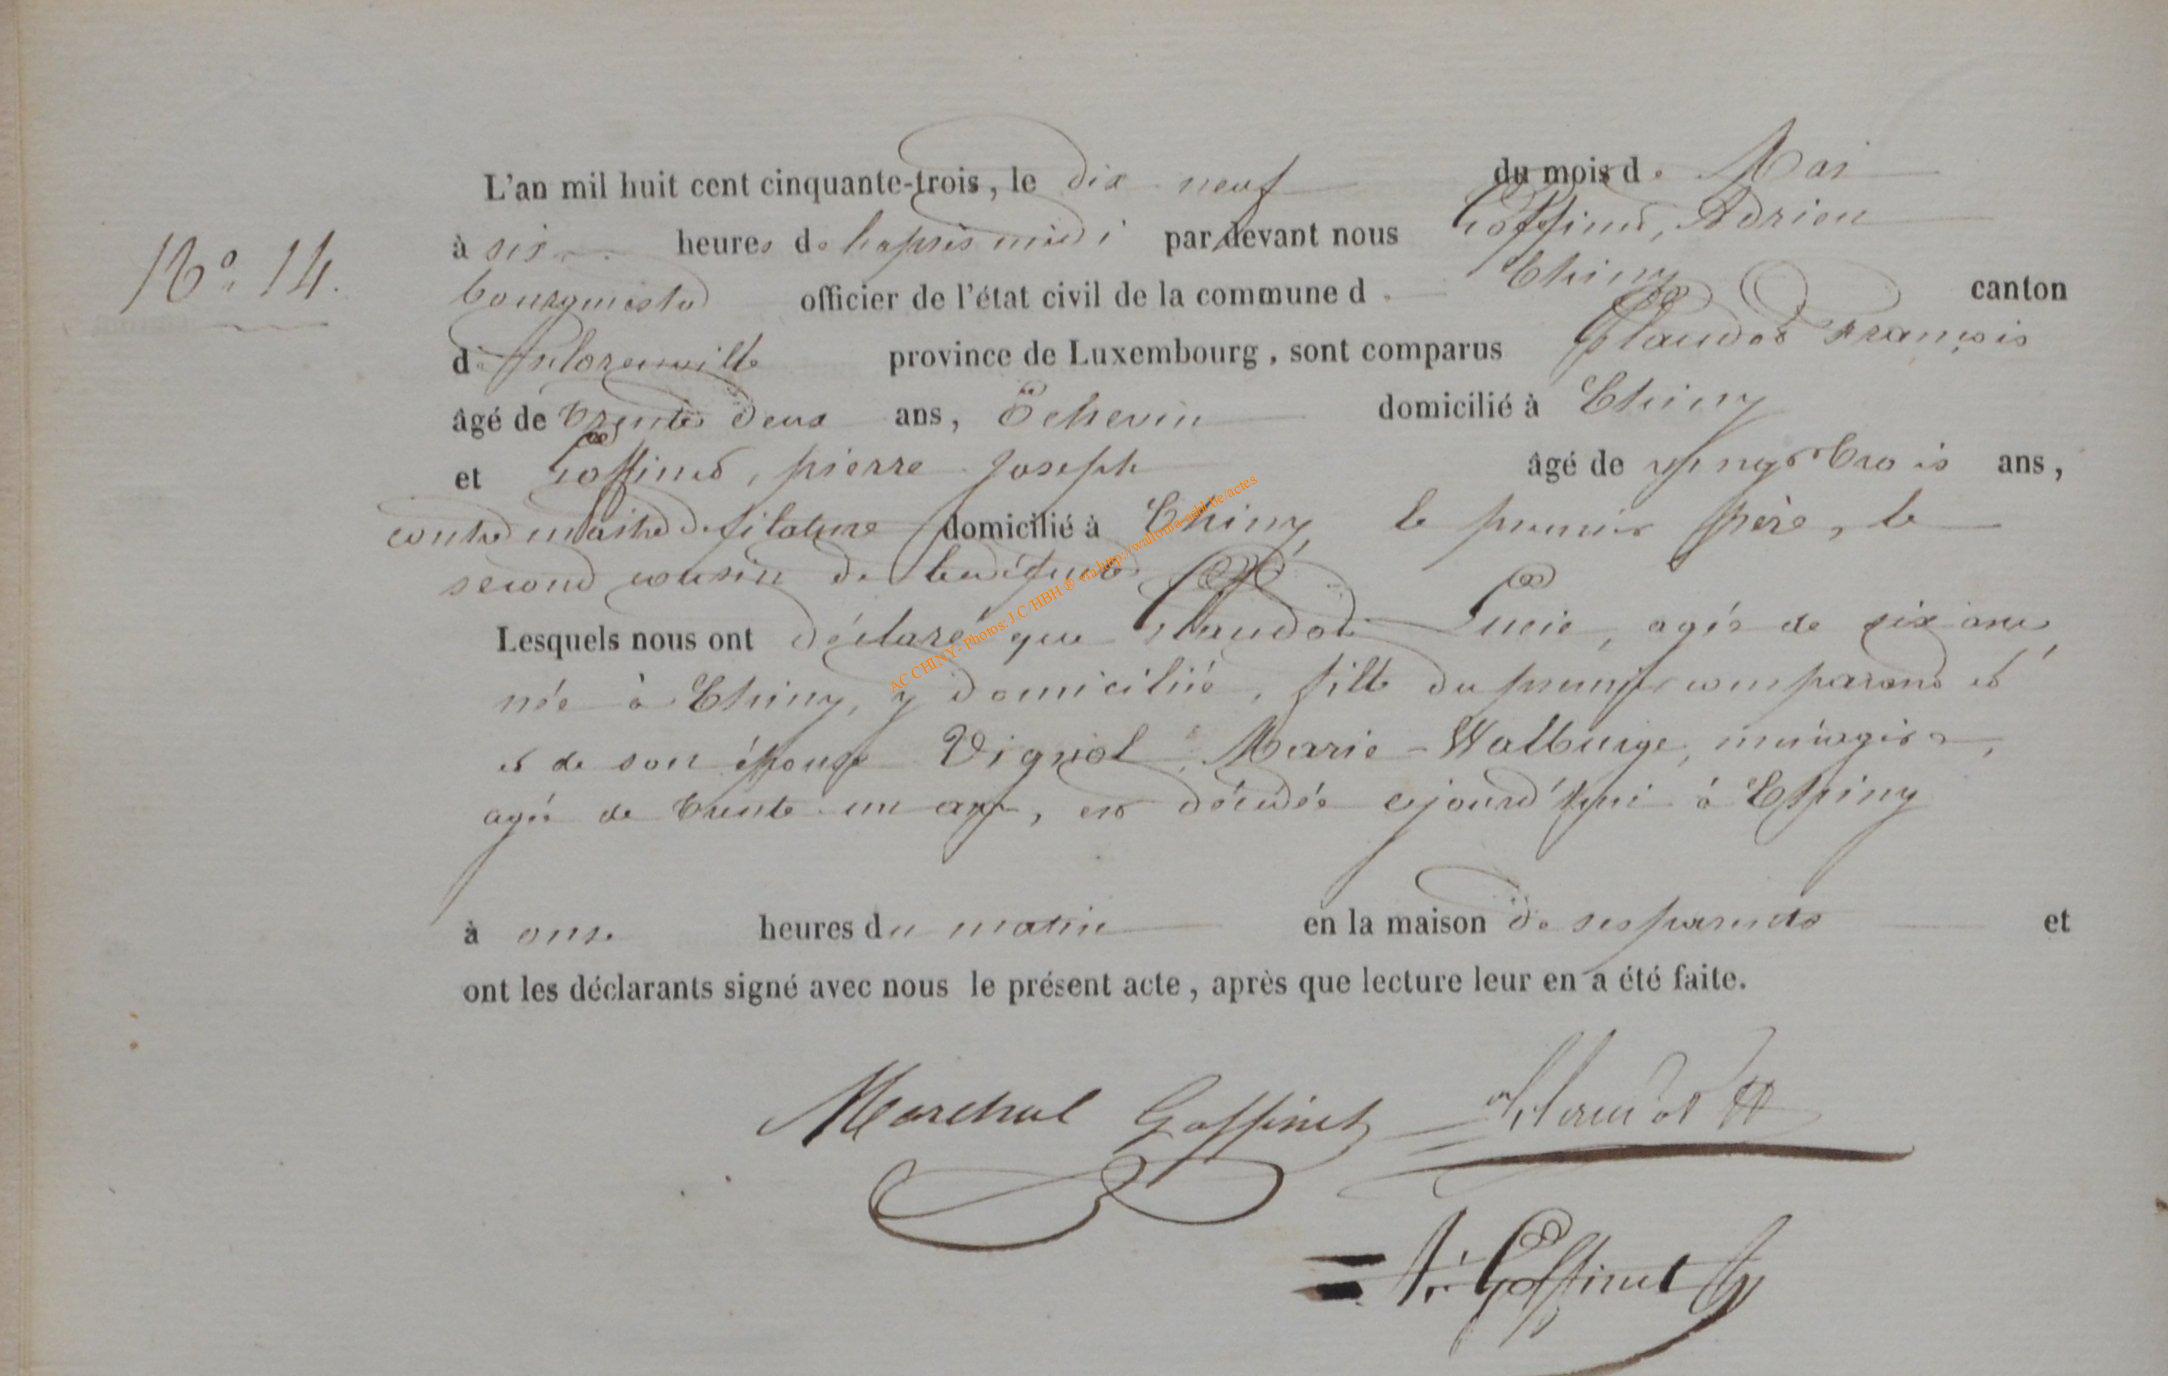 L'an mil huit cent cinquante-trois, le dix neuf du mois de Mai
N° 14.
à six heures de l'après midi par devant nous Goffinet, Adrien
bourgmestre officier de l'état civil de la commune de Chiny canton
de florenville province de Luxembourg, sont comparus Claudot François
âgé de trente deux ans, Echevin domicilié à Chiny
et Goffinet, pierre Joseph âgé de vingt trois ans,
contre maitre de filature domicilié à Chiny le premier père, le
second cousin de la défunte
Lesquels nous ont déclaré que Claudot Lucie, agée de six ans,
née à Chiny, y domiciliée, fille du premier comparant et
et de son épouse Vignol, Marie-Walburge, ménagère,
agée de trente un ans, est décédée cejourd'hui à Chiny
à onze heures du matin en la maison de ses parents et
ont les déclarants signé avec nous le présent acte, après que lecture leur en a été faite.
Marchal Goffinet Claudot
A. Goffinet
AC CHINY- Photos: J.C. HBH ® via http://wallonia-asbl.be/actes